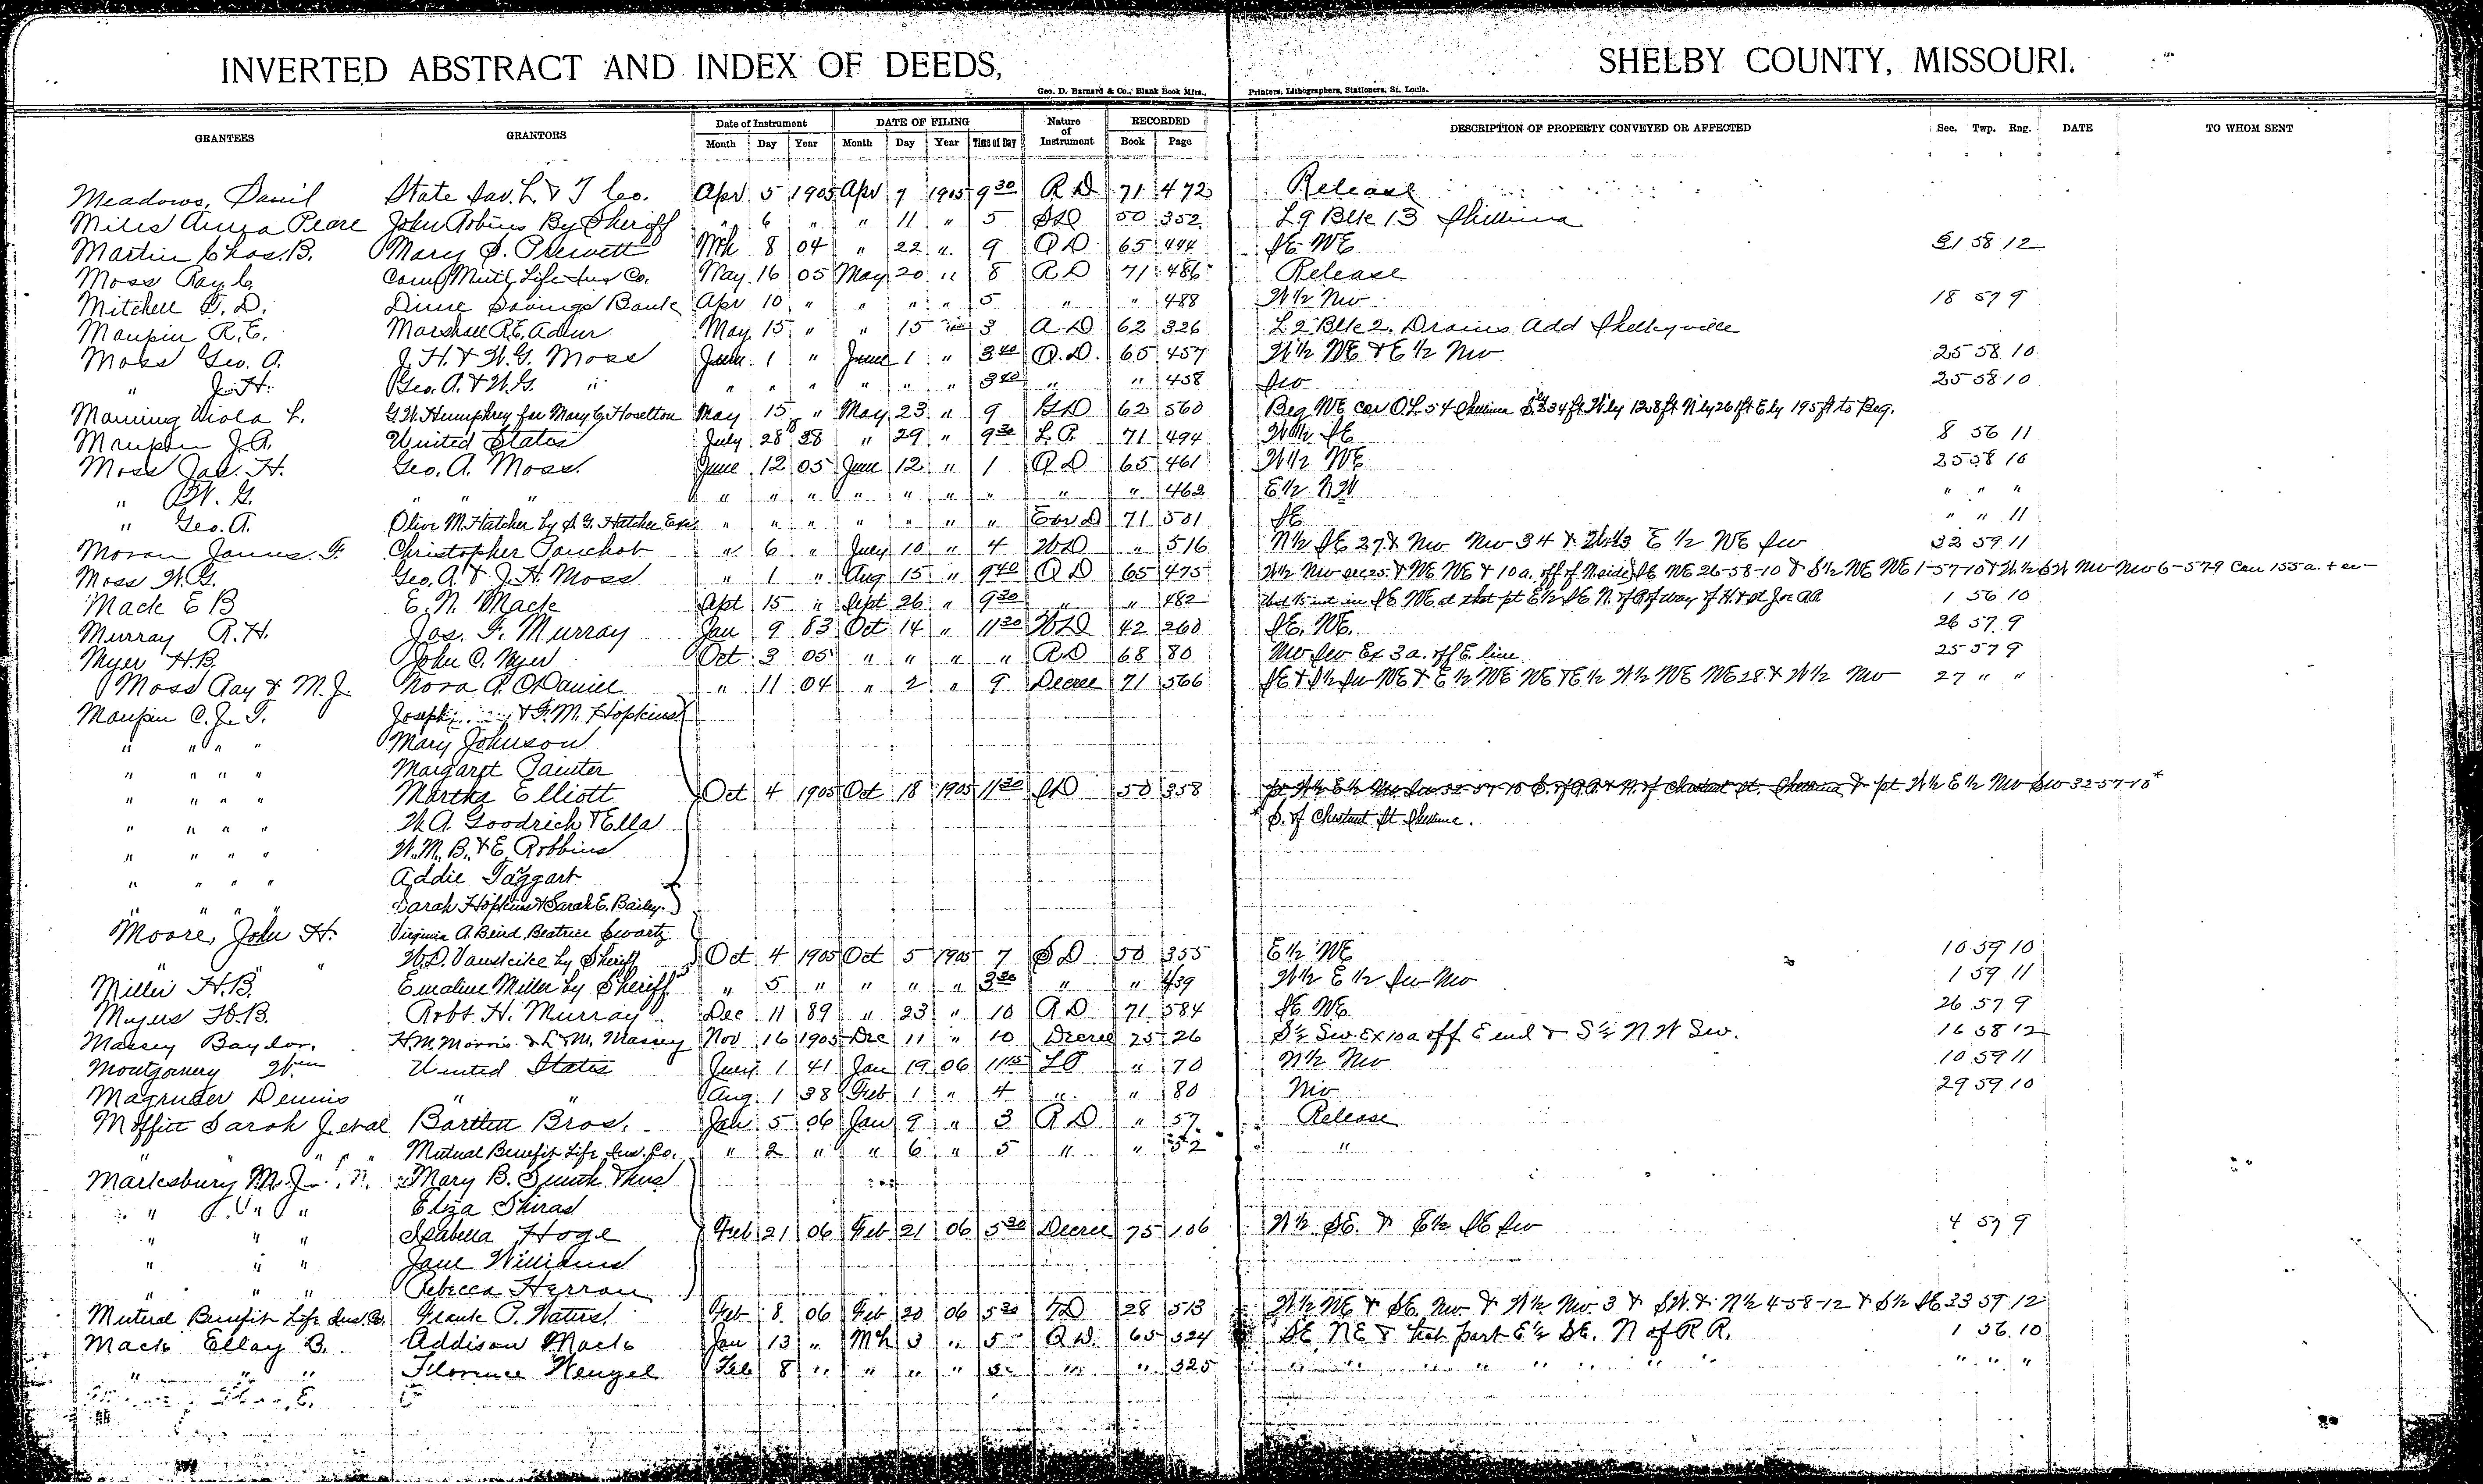 INVERTED ABSTRACT AND INDEX OF DEEDS, SHELBY COUNTY, MISSOURI.
Geo. D. Barnard & Co., Blank Book Mfrs., Printers, Lithographers, Stationers, St. Louis.
GRANTEES GRANTORS Date of Instrument DATE OF FILING Nature of Instrument RECORDED DESCRIPTION OF PROPERTY CONVEYED OR AFFECTED Sec. Twp. Rng. DATE TO WHOM SENT
Month Day Year Month Day Year Time of Day Book Page
Meadows, State Sav. L & T Co. Apr 5 1905 Apr 7 1905 9 30 R D 71 472 Release
Miles Anna Pearl John Robins By Sheriff " 6 " " 11 " 5 S D 50 352 L 9 Blk 13 Shelbina
Martin Chas. B. Mary S. Prewitt Mch 8 04 " 22 " 9 Q D 65 444 SE NE 31 58 12
Moss Ray C. Mutl Life Ins Co. May 16 05 May 20 " 8 R D 71 486 Release
Mitchell T. D. Dime Savings Bank Apr 10 " " " " 5 " " 488 W 1/2 Nw 18 57 9
Maupin R. E. Marshall R. E. May 15 " " 15 " 3 A D 62 326 L 2 Blk 2 Drains Add Shelbyville
Moss Geo. A. J. H. & W. G. Moss June 1 " June 1 " 3 40 Q. D. 65 457 W 1/2 NE & E 1/2 Nw 25 58 10
" J. H. Geo. A. & W. G. " " " " " " " 3 40 " " 458 Sw 25 58 10
Manning Viola L. G. W. Humphrey for Mary C. Hoselton May 15 " May 23 " 9 62 560 Beg NE cor O.L. 54 Shelbina Sly 234 ft Wly 128 ft Nly 261 ft Ely 195 ft to Beg.
Maupin J. A. United States July 28 38 " 29 " 9 30 L. P. 71 494 W 1/2 SE 8 56 11
Moss Jas. H. Geo. A. Moss. June 12 05 June 12 " 1 Q D 65 461 W 1/2 NE 25 58 10
" W. G. " " " " " " " " " " " " 462 E 1/2 NW " " "
" Geo. A. Olive M. Hatcher by S. G. Hatcher " " " " " " " D 71 501 SE " " 11
Moran James F. Christopher Pauchot " 6 " July 10 " 4 W D " 516 N 1/2 SE 27 & Nw Nw 34 & E 1/2 NE Sw 32 59 11
Moss W. G. Geo. A. & J. H. Moss " 1 " Aug 15 " 9 40 Q D 65 475 W 1/2 Nw sec 25 & NE NE & 10 a. off of N side SE NE 26-58-10 & S 1/2 NE NE 1-57-10 & W 1/2 SW Nw Nw 6-57-9 Con 155 a. + or -
Mack E B E. N. Mack Sept 15 " Sept 26 " 9 30 " " 482 in SE NE & that pt E 1/2 SE N. of R of way of H. & St Joe RR 1 56 10
Murray R. H. Jas. F. Murray Jan 9 83 Oct 14 " 11 30 W D 42 260 SE. NE. 26 57 9
Myer H. B. John C. Myer Oct 3 05 " " " " R D 68 80 Nw Sw Ex 3 a. off E. line 25 57 9
Moss Ray & M. J. Nora A. O'Daniel " 11 04 " 2 " 9 Decree 71 566 SE & S 1/2 Sw NE & E 1/2 NE NE & E 1/2 W 1/2 NE NE 28 & W 1/2 Nw 27 " "
Maupin C. J. T. Joseph & F. M. Hopkins
" " " " Mary Johnson
" " " " Margaret Painter
" " " " Martha Elliott Oct 4 1905 Oct 18 1905 11 30 S D 50 358 pt W 1/2 E 1/2 Nw Sw 32-57-10 S. of R.R. & N. of Chestnut st. Shelbina & pt W 1/2 E 1/2 Nw Sw 32-57-10 *
" " " " W. A. Goodrich & Ella * S. of Chestnut St Shelbina.
" " " " W. M. B. & E. Robbins
" " " " Addie Taggart
" " " " Sarah Hopkins & Sarah E. Bailey.
Moore, John H. Virginia A. Baird, Beatrice Swartz
" " " W. D. Vanskike by Sheriff Oct 4 1905 Oct 5 1905 7 S D 50 355 E 1/2 NE 10 59 10
Miller H. B. Emaline Miller by Sheriff " 5 " " " " 3 30 " " W 1/2 E 1/2 Sw Nw 1 59 11
Myers H. B. Robt. H. Murray Dec 11 89 " 23 " 10 Q D 71 584 SE NE 26 57 9
Massey Baylor. H. M. Morris & L. M. Massey Nov 16 1905 Dec 11 " 10 Decree 75 26 S 1/2 Sw Ex 10 a off E end & S 1/2 N W Sw. 16 58 12
Montgomery Wm United States July 1 41 Jan 19 06 11 15 L P " 70 N 1/2 Nw 10 59 11
Magruder Dennis " " Aug 1 38 Feb 1 " 4 " " 80 Nw 29 59 10
Moffitt Sarah J. et al Bartlett Bros. Jan 5 06 Jan 9 " 3 R D " 57 Release
" " " " Mutual Benefit Life Ins. Co. " 2 " " 6 " 5 " " 52 "
Marksbury M. J. Mary B. Smith Thos
" " " Eliza Shiras
" " " Isabella Hoge Feb 21 06 Feb 21 06 5 30 Decree 75 106 W 1/2 SE. & E 1/2 SE Sw 4 57 9
" " " Jane Williams
" " " Rebecca Herron
Mutual Benefit Life Ins. Co. Frank P. Waters. Feb 8 06 Feb 20 06 5 30 T D 28 513 W 1/2 NE & SE. Nw & W 1/2 Nw. 3 & N 1/2 4-58-12 & S 1/2 SE 33 59 12
Mack Ellay B. Addison Mack Jan 13 " Mch 3 " 5 Q D. 65 524 SE NE & that part E 1/2 SE. N of R R. 1 56 10
" " Florence Wengel Feb 8 " " " " 5 " " 525 " " " " " " " " " "